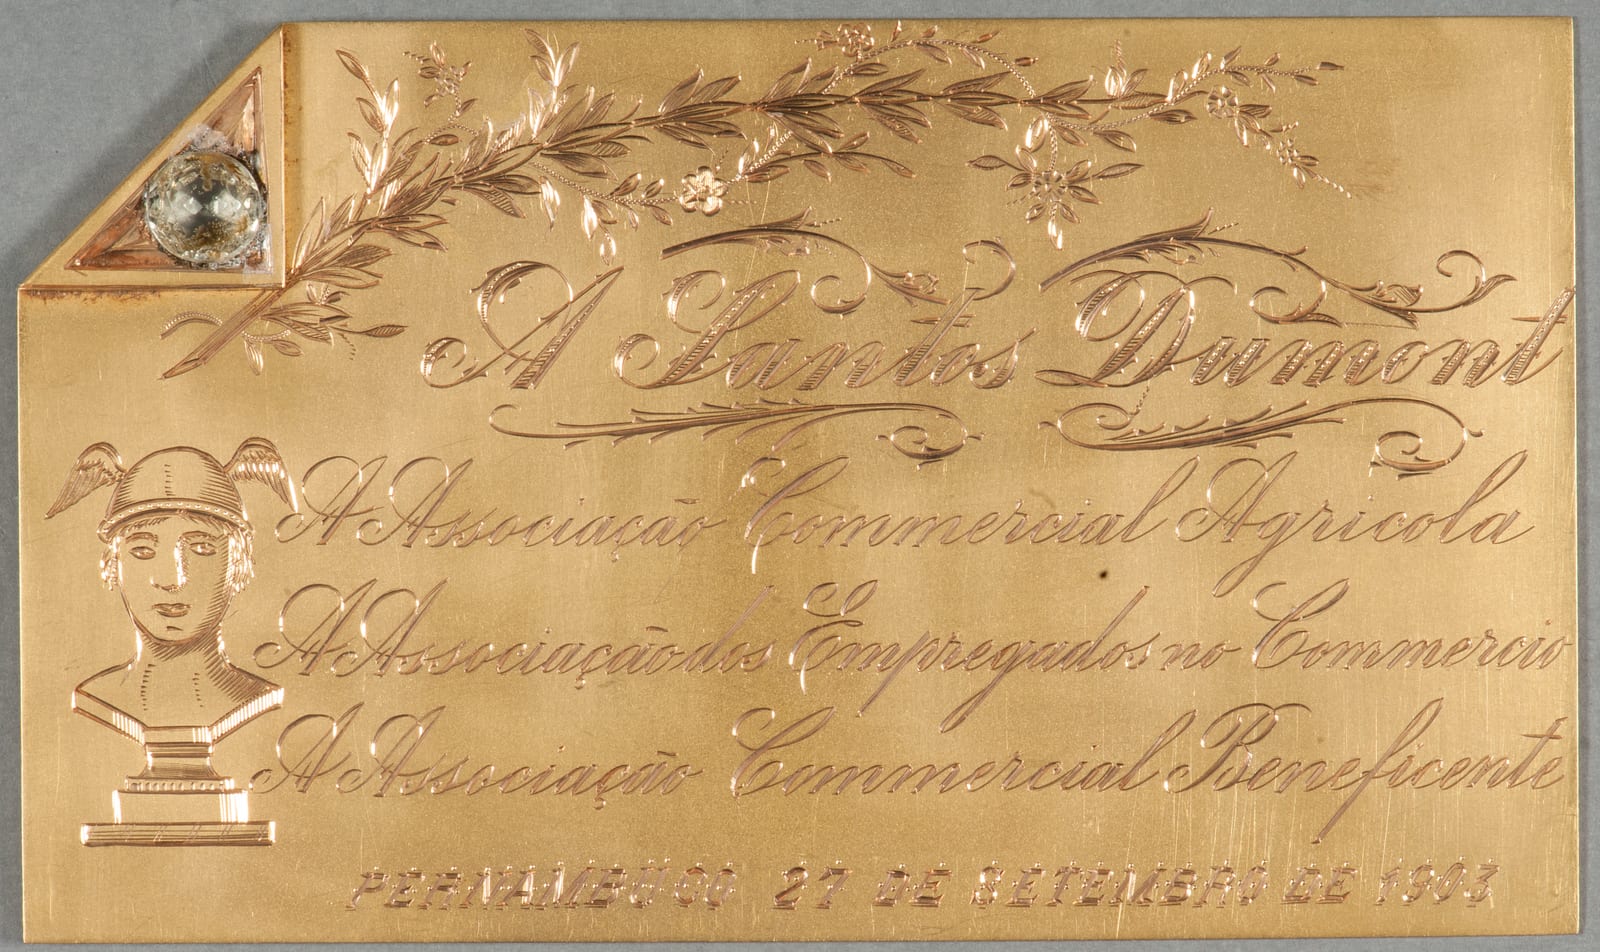 A Santos Dumont
A Associação Commercial Agricola
A Associação dos Empregados no Commercio
A Associação Commercial Beneficente
PERNAMBUCO 27 DE SETEMBRO DE 1903